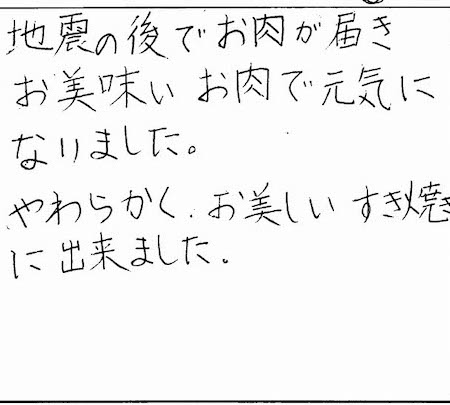 地震の後でお肉が届き
お美味い お肉で元気に
なりました。
やわらかく、お美しい すき焼き
に出来ました。